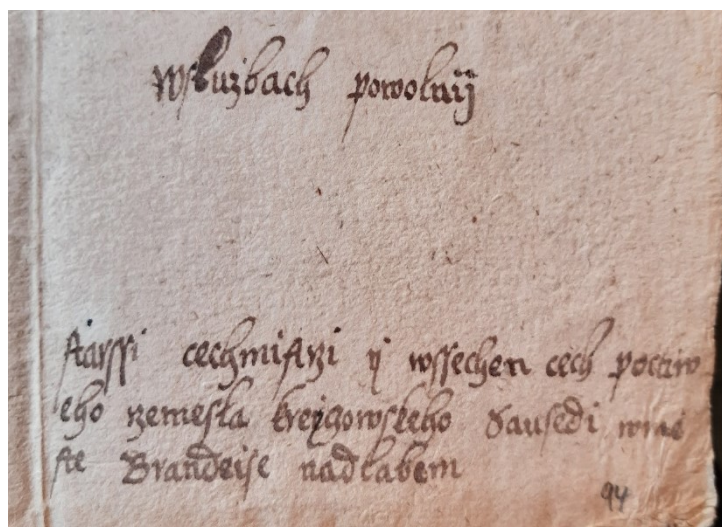 wsłużbach powolnij
starssi cechmistrzi ij wssechen cech poctiw
eho rzemesła kreiczowskeho Sausedi wmie
ste Brandeise nadlabem
94